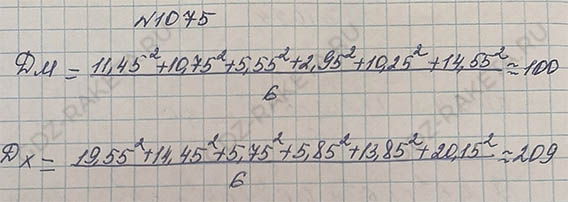 №1075
Дм = 11,45²+10,75²+5,55²+2,95²+10,25²+14,55² / 6 ≈ 100
Дх = 19,55²+14,45²+5,75²+5,85²+13,85²+20,15² / 6 ≈ 209